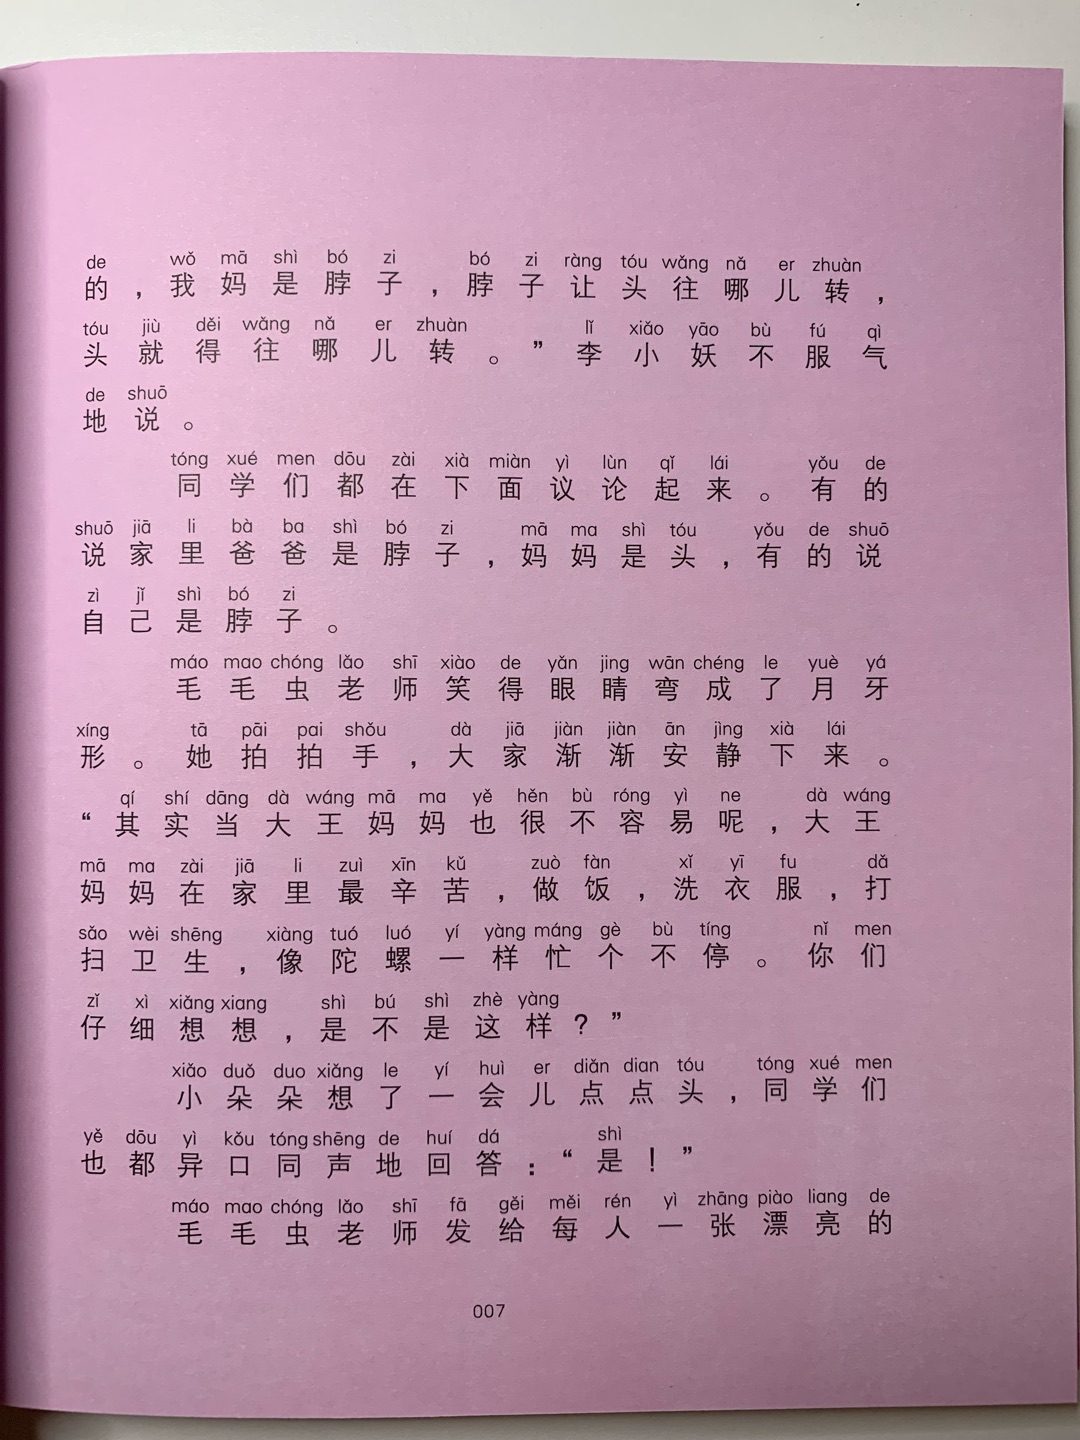 de wǒ mā shì bó zi bó zi ràng tóu wǎng nǎ er zhuàn
的，我妈是脖子，脖子让头往哪儿转，
tóu jiù děi wǎng nǎ er zhuàn lǐ xiǎo yāo bù fú qì
头就得往哪儿转。”李小妖不服气
de shuō
地说。
tóng xué men dōu zài xià miàn yì lùn qǐ lái yǒu de
同学们都在下面议论起来。有的
shuō jiā li bà ba shì bó zi mā ma shì tóu yǒu de shuō
说家里爸爸是脖子，妈妈是头，有的说
zì jǐ shì bó zi
自己是脖子。
máo mao chóng lǎo shī xiào de yǎn jing wān chéng le yuè yá
毛毛虫老师笑得眼睛弯成了月牙
xíng tā pāi pai shǒu dà jiā jiàn jiàn ān jìng xià lái
形。她拍拍手，大家渐渐安静下来。
qí shí dāng dà wáng mā ma yě hěn bù róng yì ne dà wáng
“其实当大王妈妈也很不容易呢，大王
mā ma zài jiā li zuì xīn kǔ zuò fàn xǐ yī fu dǎ
妈妈在家里最辛苦，做饭，洗衣服，打
sǎo wèi shēng xiàng tuó luó yí yàng máng gè bù tíng nǐ men
扫卫生，像陀螺一样忙个不停。你们
zǐ xì xiǎng xiang shì bú shì zhè yàng
仔细想想，是不是这样？”
xiǎo duǒ duo xiǎng le yí huì er diǎn dian tóu tóng xué men
小朵朵想了一会儿点点头，同学们
yě dōu yì kǒu tóng shēng de huí dá shì
也都异口同声地回答：“是！”
máo mao chóng lǎo shī fā gěi měi rén yì zhāng piào liang de
毛毛虫老师发给每人一张漂亮的
007